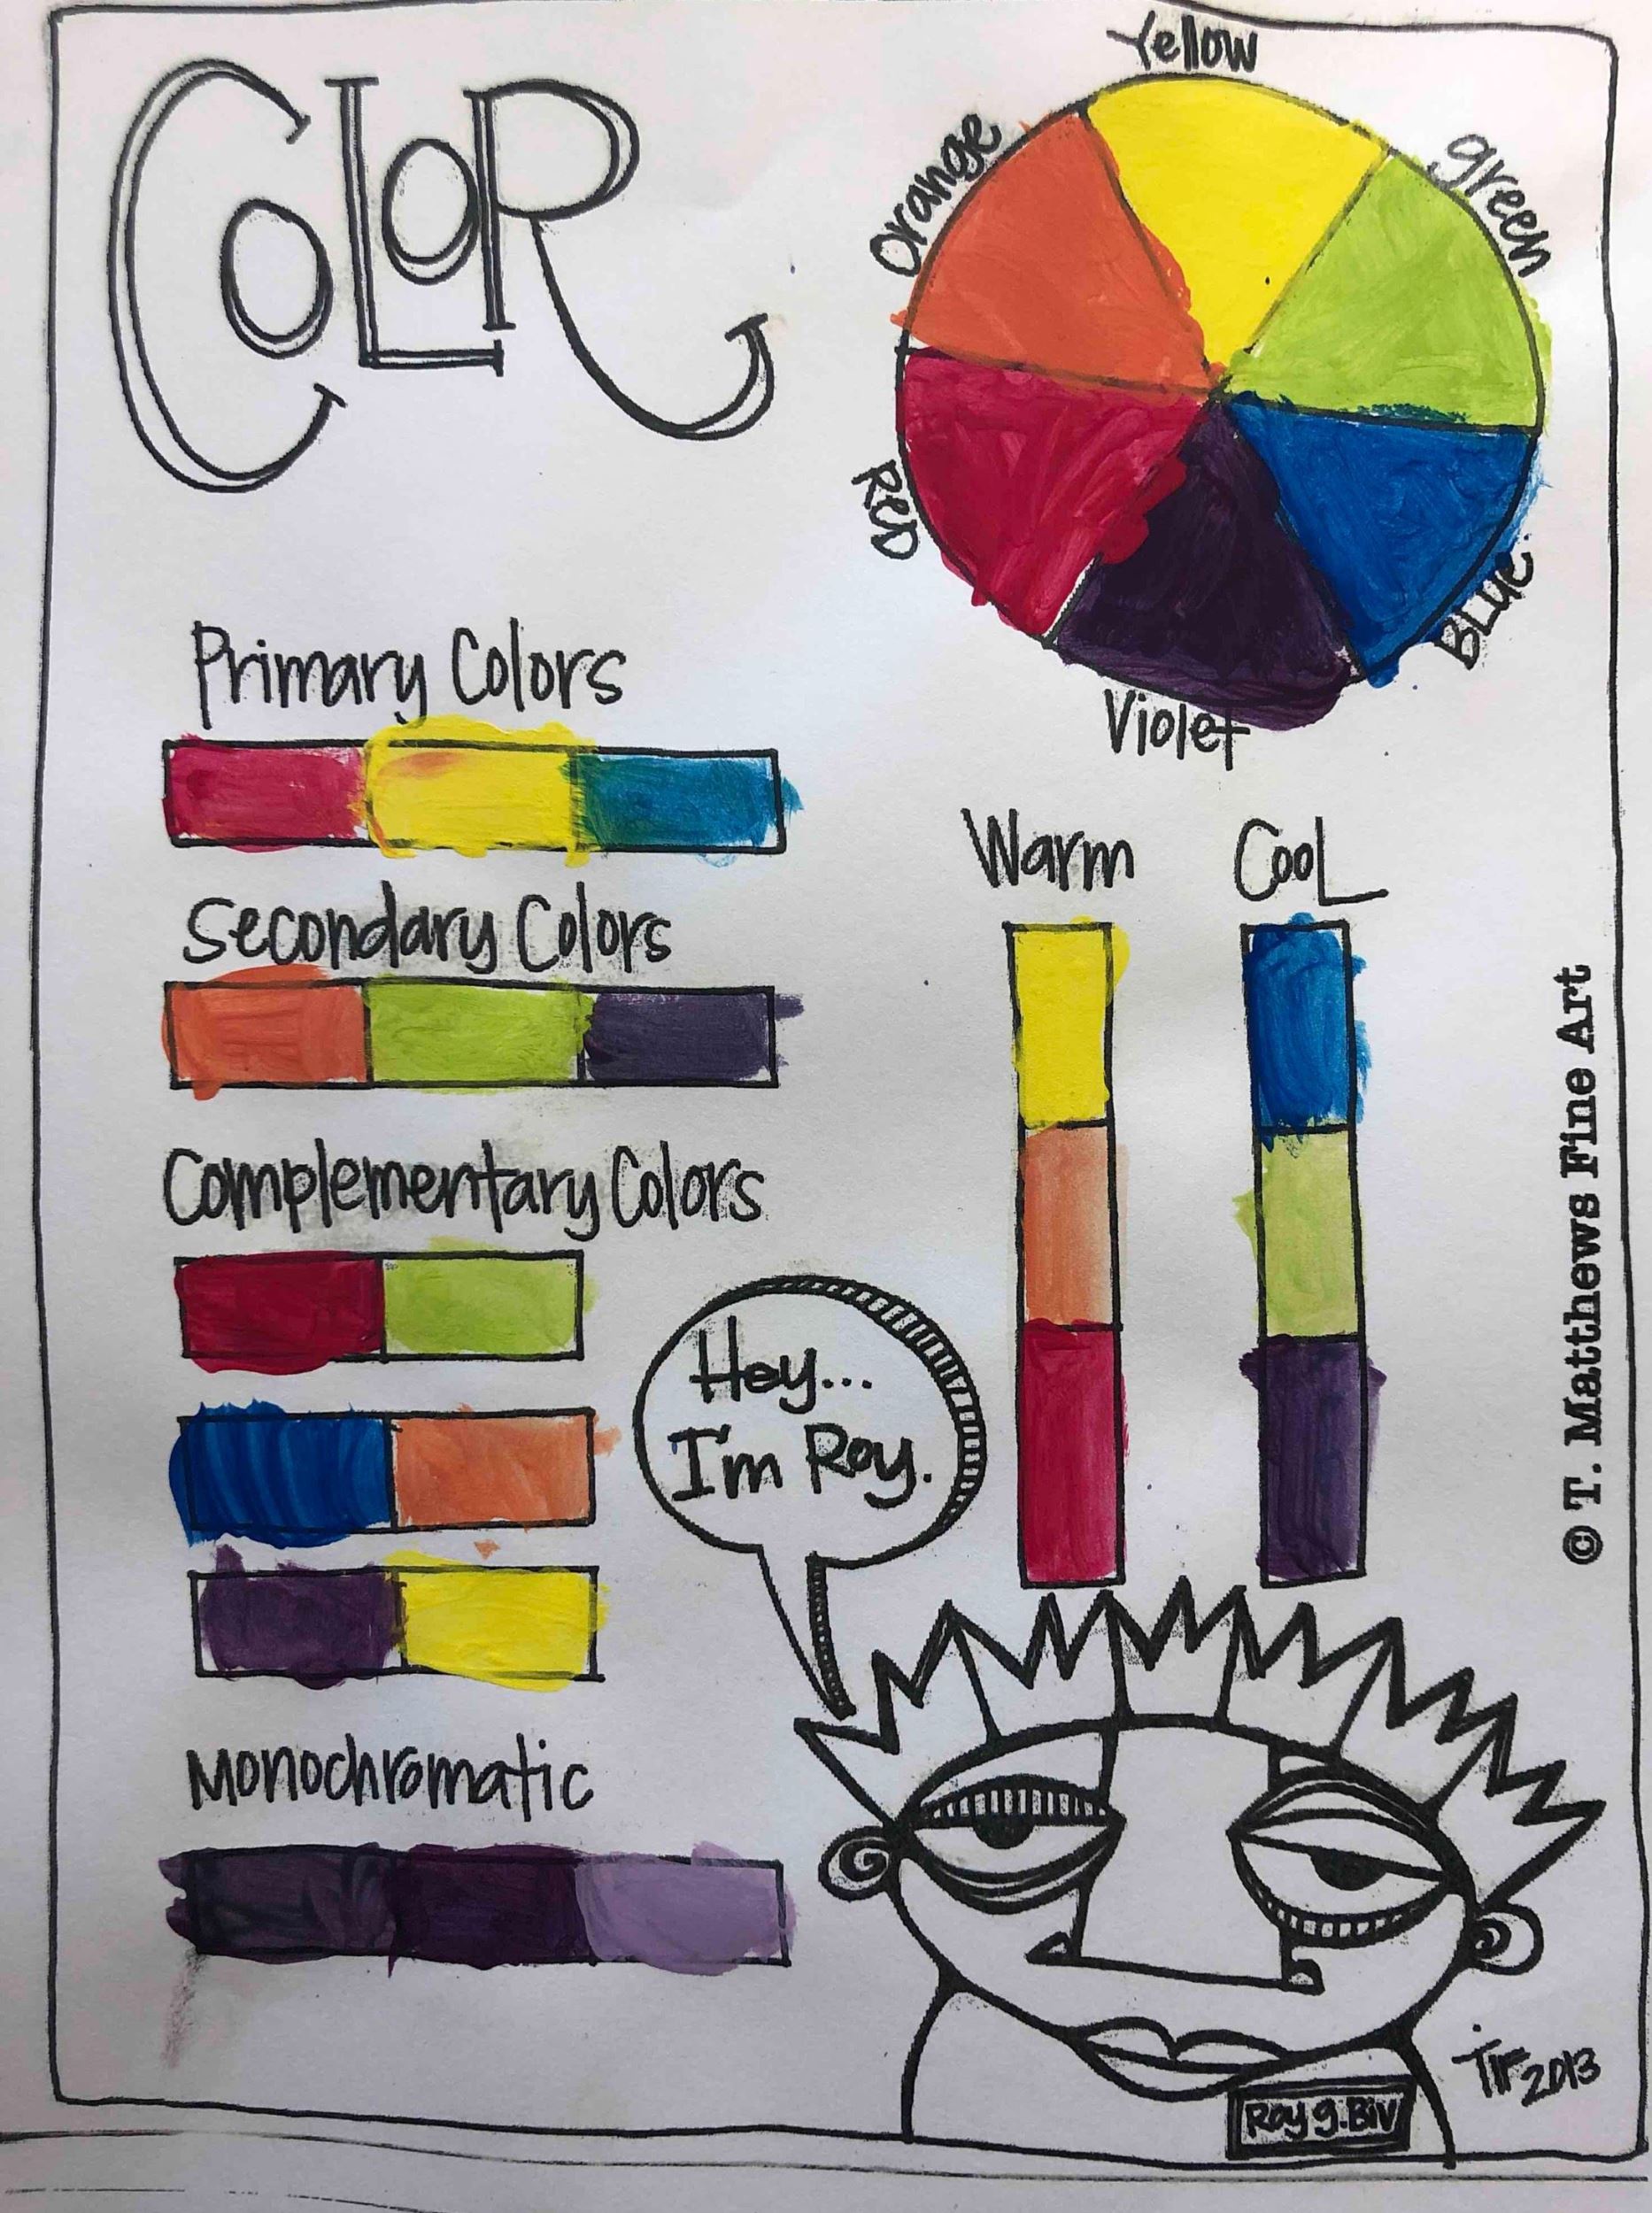 COLOR
Yellow
Orange
green
RED
BLUE
Violet
Primary Colors
Secondary Colors
Complementary Colors
Monochromatic
Warm
CooL
Hey...
I'm Roy.
© T. Matthews Fine Art
Roy g. BIV
TIF 2013